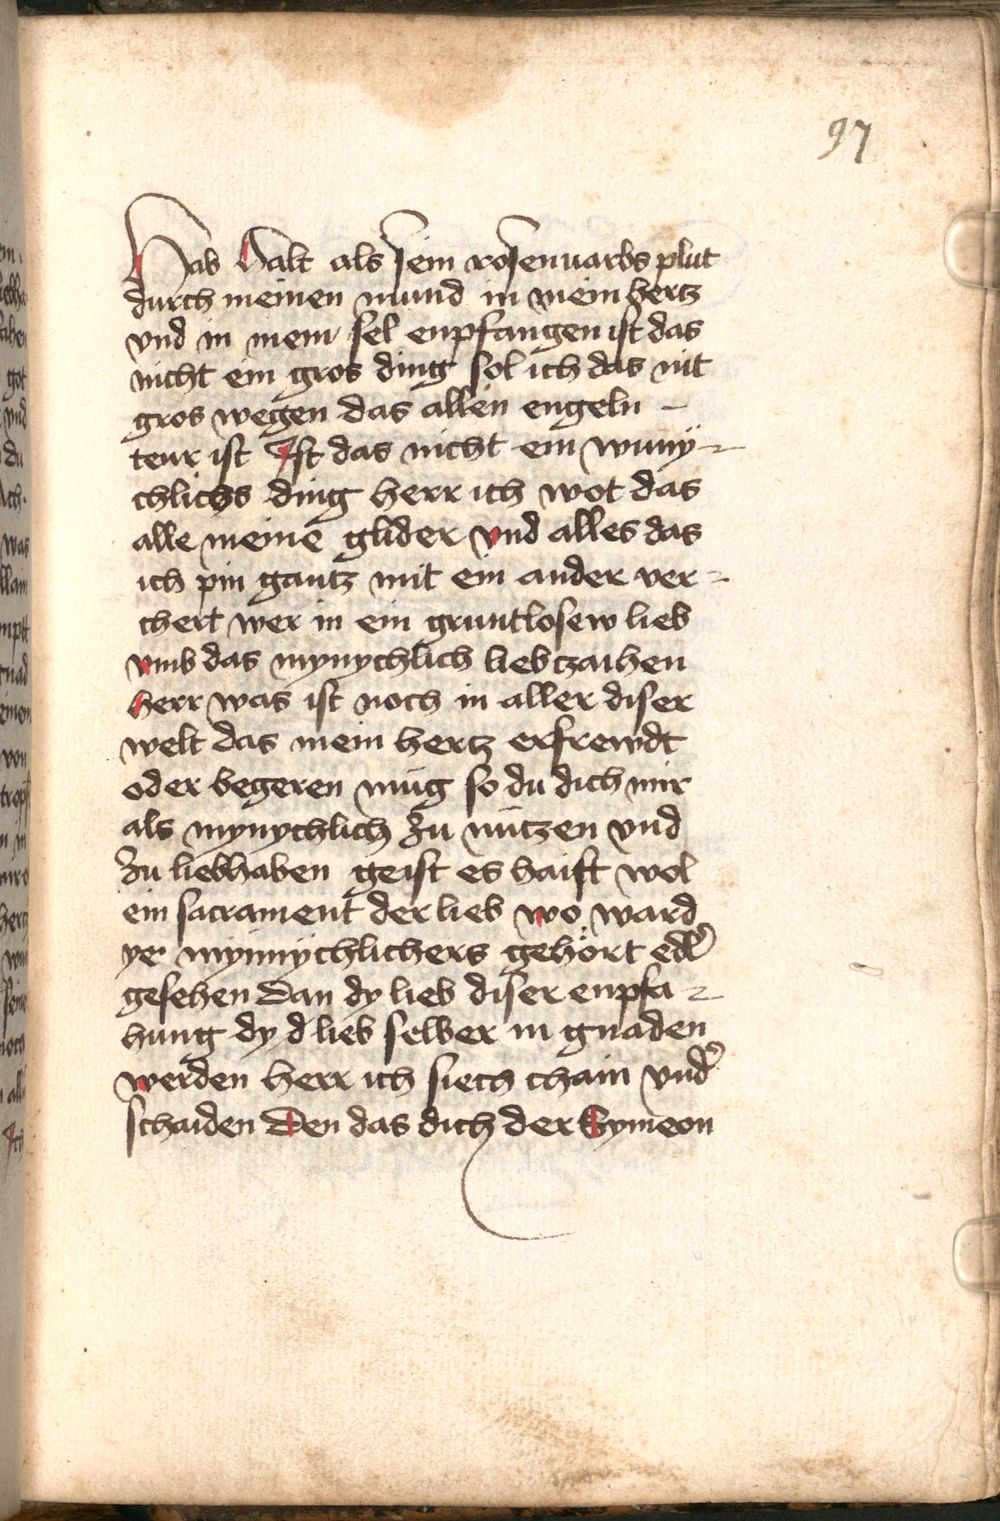 97
Hab halt als sein rosenuarbs plut
durch meinen mund in mein hertz
vnd in mein sel enpfangen ist das
nicht ein gros ding sol ich das nit
gros wegen das allen engeln -
teur ist Ist das nicht ein wuny=
chlichs ding herr ich wot das
alle meine glider vnd alles das
ich pin gantz mit ein ander ver=
chert wer in ein gruntlosew lieb
vmb das mynychlich liebtzaihen
herr was ist noch in aller diser
welt das mein hertz erfrewdt
oder begeren mug so du dich mir
als mynychlich zu nützen vnd
zu liebhaben geist es haist wol
ein sacrament der lieb wo ward
ye mynnychlichers gehört od
gesehen dan dy lieb diser enpfa=
hung dy d lieb selber in gnaden
werden herr ich siech chain vnd
schaiden Den das dich der Symeon